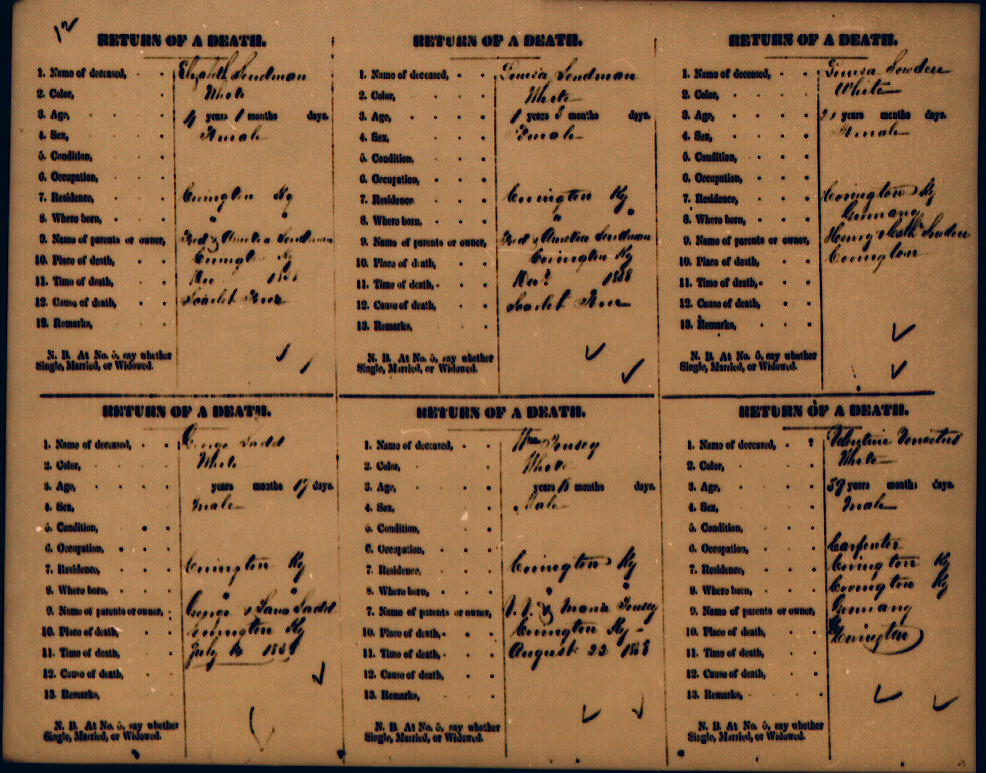 12
RETURN OF A DEATH.
1. Name of deceased, Elizabeth Sendman
2. Color, White
3. Age, 4 years 1 months days.
4. Sex, Female
5. Condition,
6. Occupation,
7. Residence, Covington Ky
8. Where born, " "
9. Name of parents or owner, Fred & Amelia Sendman
10. Place of death, Covington Ky
11. Time of death, Nov 1858
12. Cause of death, Scarlet Fever
13. Remarks,
N. B. At No. 5, say whether
Single, Married, or Widowed.
RETURN OF A DEATH.
1. Name of deceased, Louisa Sendman
2. Color, White
3. Age, 1 years 3 months days.
4. Sex, Female
5. Condition,
6. Occupation,
7. Residence, Covington Ky
8. Where born. " "
9. Name of parents or owner, Fred & Amelia Sendman
10. Place of death, Covington Ky
11. Time of death, 1858
12. Cause of death, Scarlet Fever
13. Remarks,
N. B. At No. 5, say whether
Single, Married, or Widowed.
RETURN OF A DEATH.
1. Name of deceased, Louisa
2. Color, White
3. Age, years months days.
4. Sex, Female
5. Condition,
6. Occupation,
7. Residence, Covington Ky
8. Where born, Germany
9. Name of parents or owner, Henry & Cath
10. Place of death, Covington
11. Time of death,
12. Cause of death,
13. Remarks,
N. B. At No. 5, say whether
Single, Married, or Widowed.
RETURN OF A DEATH.
1. Name of deceased, George Ladd
2. Color, White
3. Age, years months 17 days.
4. Sex, Male
5. Condition,
6. Occupation,
7. Residence, Covington Ky
8. Where born, " "
9. Name of parents or owner, George & Ladd
10. Place of death, Covington Ky
11. Time of death, July 1858
12. Cause of death,
13. Remarks,
N. B. At No. 5, say whether
Single, Married, or Widowed.
RETURN OF A DEATH.
1. Name of deceased, Wm Tousey
2. Color, White
3. Age, years months days.
4. Sex, Male
5. Condition,
6. Occupation,
7. Residence, Covington Ky
8. Where born, " "
7. Name of parents or owner, & Maria Tousey
10. Place of death, Covington Ky
11. Time of death, August 22 1858
12. Cause of death,
13. Remarks,
N. B. At No. 5, say whether
Single, Married, or Widowed.
RETURN OF A DEATH.
1. Name of deceased, Valentine
2. Color, White
3. Age, 59 years months days.
4. Sex, Male
5. Condition,
6. Occupation, Carpenter
7. Residence, Covington Ky
8. Where born, Covington Ky
9. Name of parents or owner, Germany
10. Place of death, Covington
11. Time of death,
12. Cause of death,
13. Remarks,
N. B. At No. 5, say whether
Single, Married, or Widowed.